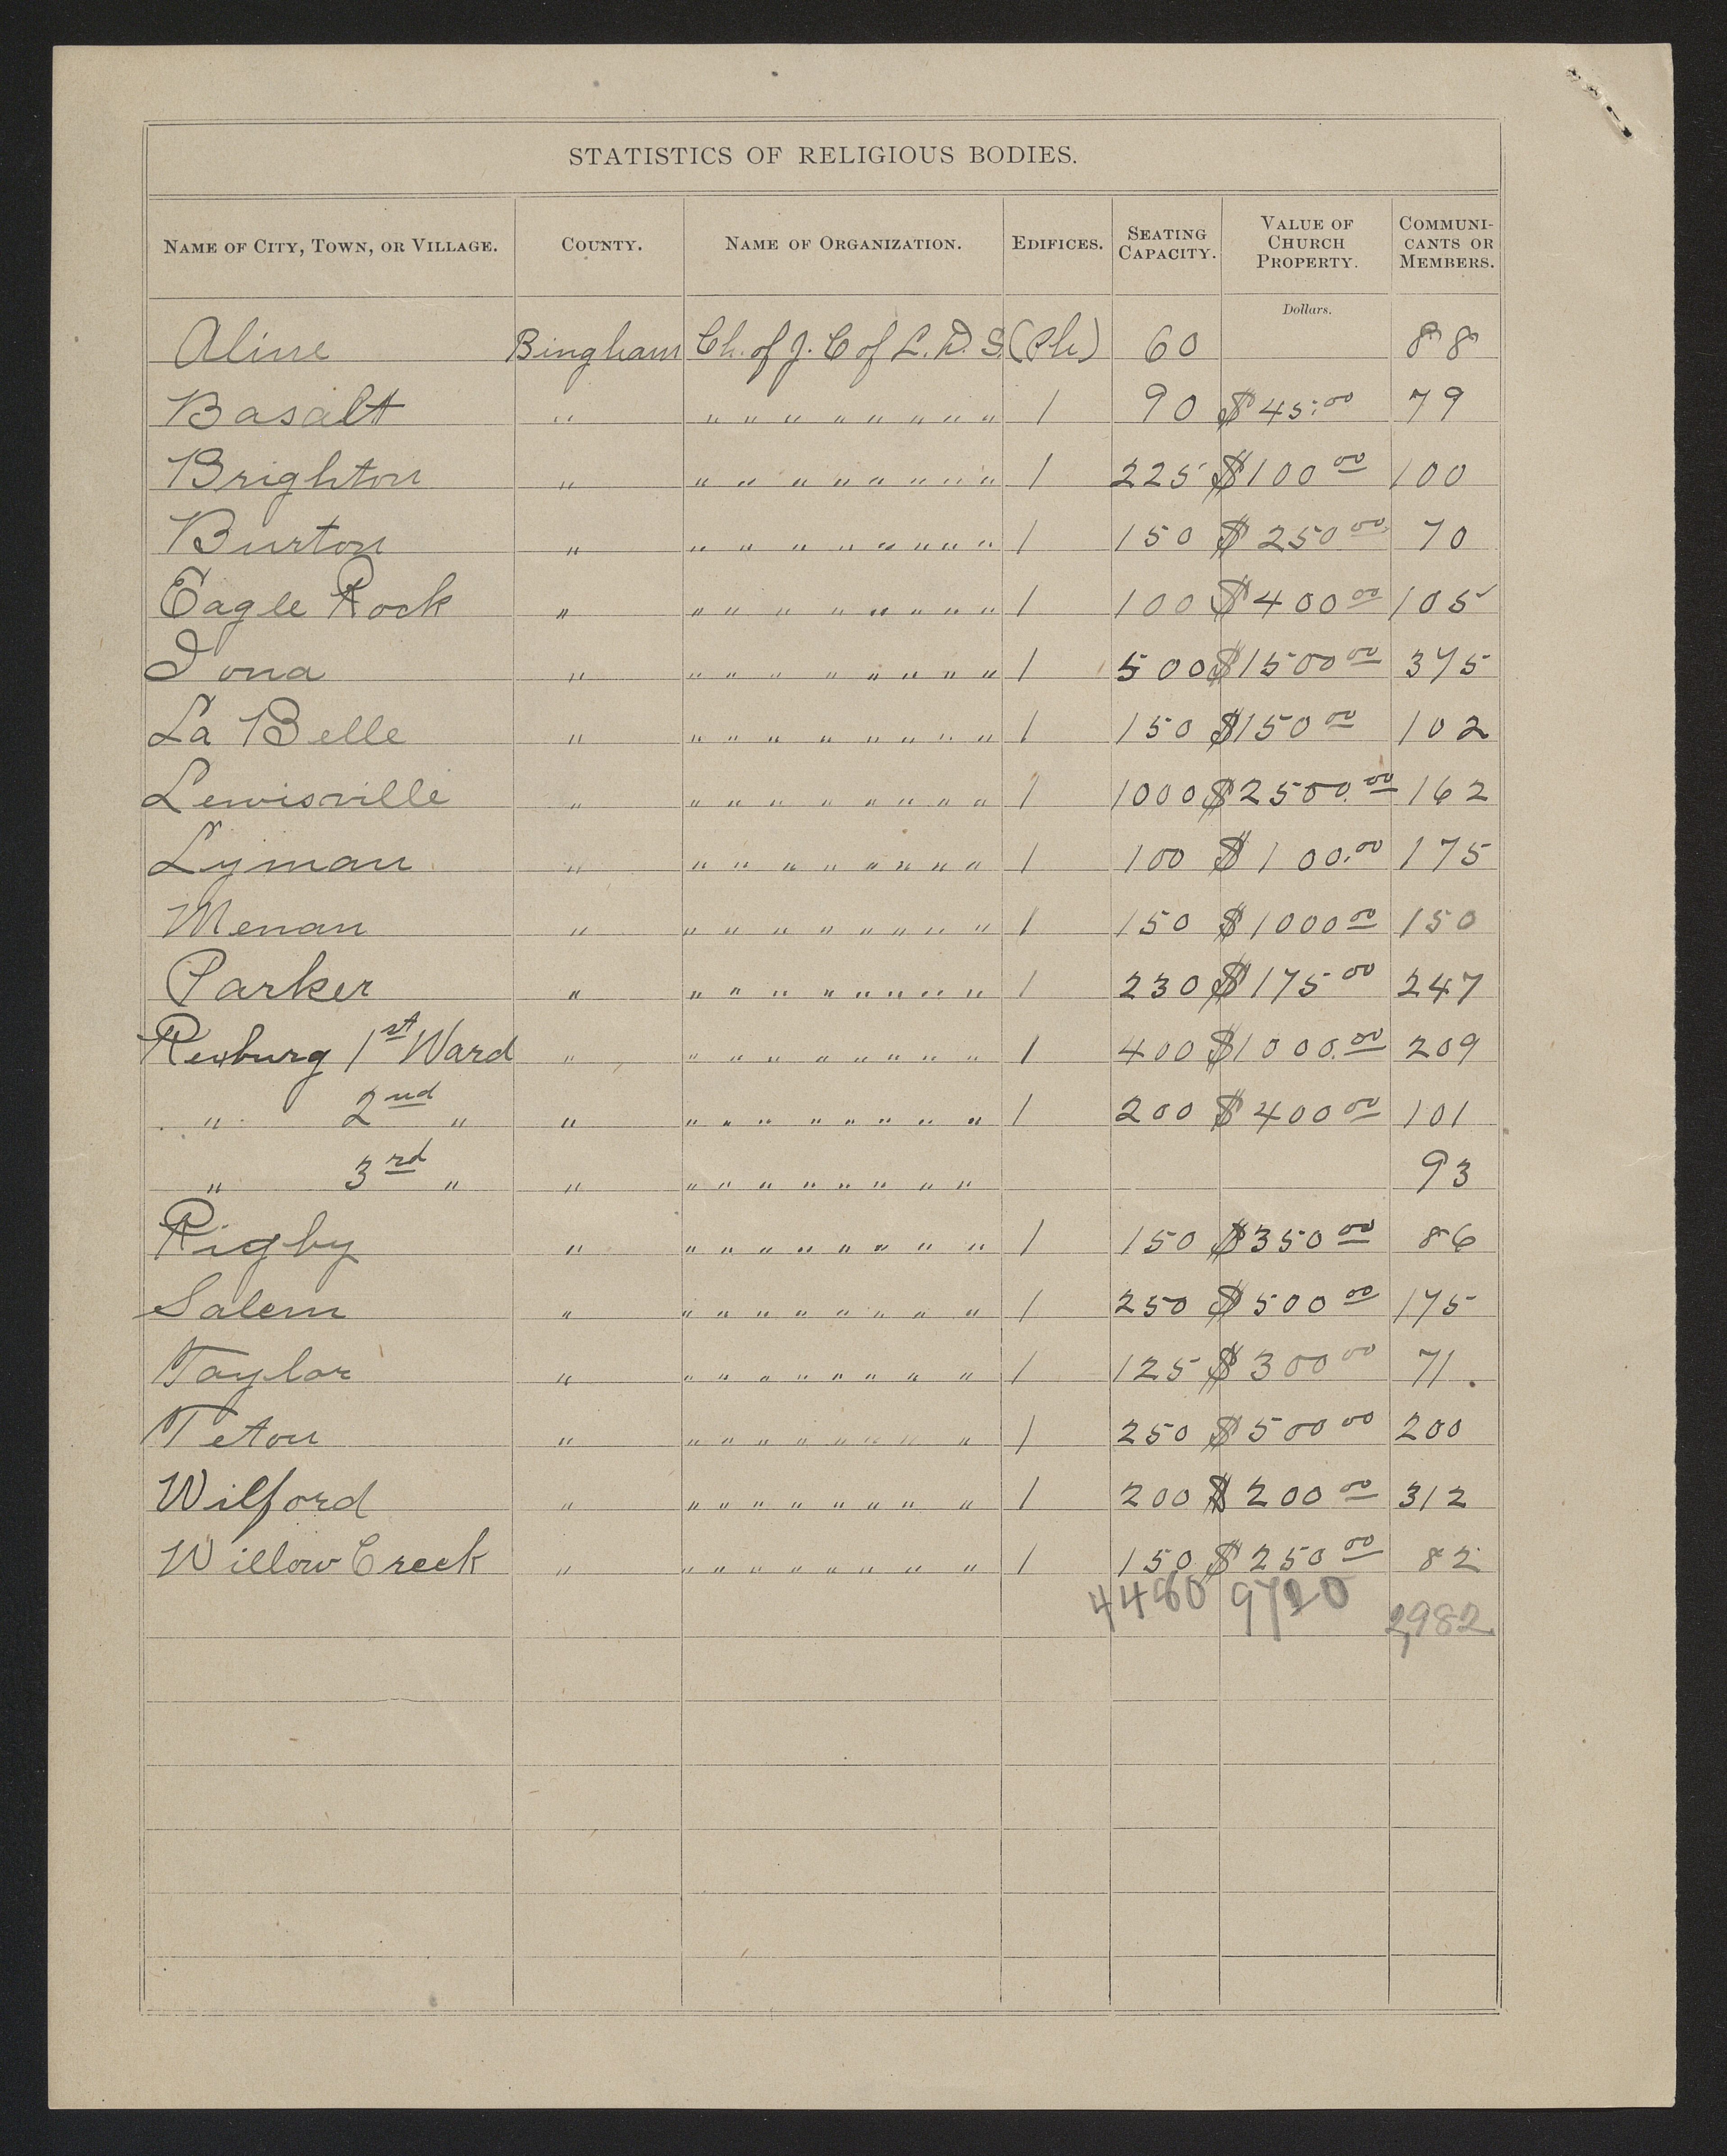 STATISTICS OF RELIGIOUS BODIES.
NAME OF CITY, TOWN, OR VILLAGE. COUNTY. NAME OF ORGANIZATION. EDIFICES. SEATING CAPACITY. VALUE OF CHURCH PROPERTY. COMMUNI-CANTS OR MEMBERS.
Dollars.
Aline Bingham Ch. of J. C of L. D. S. (Ph) 60 88
Basalt " " " " " " " " " " 1 90 $45.00 79
Brighton " " " " " " " " " " 1 225 $100 00 100
Burton " " " " " " " " " " 1 150 $250 00 70
Eagle Rock " " " " " " " " " " 1 100 $400 00 105
Iona " " " " " " " " " 1 500 $1500 00 375
La Belle " " " " " " " " " " 1 150 $150 00 102
Lewisville " " " " " " " " " 1 1000 $2500.00 162
Lyman " " " " " " " " " " 1 100 $100.00 175
Menan " " " " " " " " " " 1 150 $1000 00 150
Parker " " " " " " " " " " 1 230 $175 00 247
Rexburg 1st Ward " " " " " " " " " " 1 400 $1000.00 209
" 2nd " " " " " " " " " " " 1 200 $400 00 101
" 3rd " " " " " " " " " " 93
Rigby " " " " " " " " " " 1 150 $350 00 86
Salem " " " " " " " " " 1 250 $500 00 175
Taylor " " " " " " " " " 1 125 $300 00 71.
Teton " " " " " " " " " 1 250 $500 00 200
Wilford " " " " " " " " " 1 200 $200 00 312
Willow Creek " " " " " " " " " 1 150 $250 00 82
4480 9720 2,982